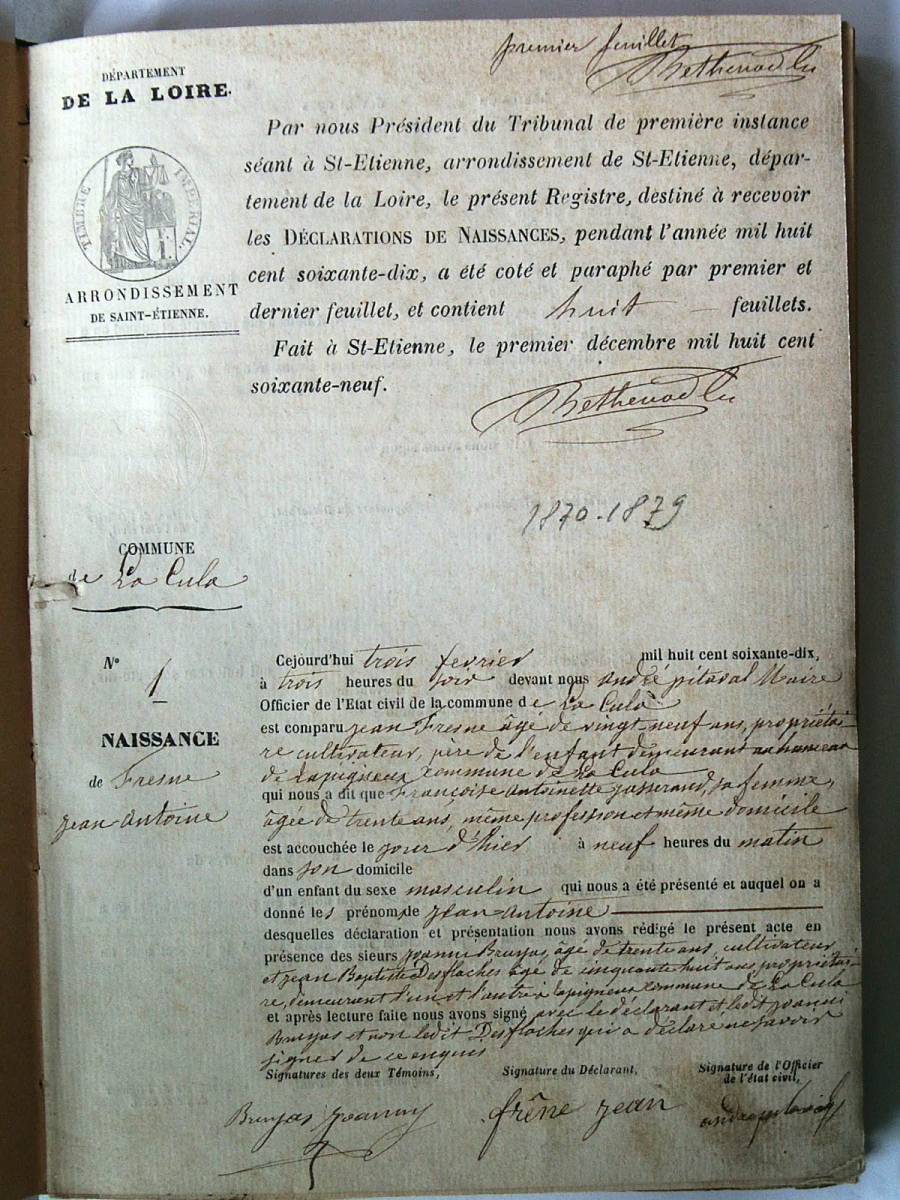 premier feuillet
Bethenod
DÉPARTEMENT
DE LA LOIRE.
TIMBRE IMPÉRIAL.
ARRONDISSEMENT
DE SAINT-ÉTIENNE.
Par nous Président du Tribunal de première instance
séant à St-Etienne, arrondissement de St-Etienne, dépar-
tement de la Loire, le présent Registre, destiné à recevoir
les DÉCLARATIONS DE NAISSANCES, pendant l'année mil huit
cent soixante-dix, a été coté et paraphé par premier et
dernier feuillet, et contient huit feuillets.
Fait à St-Etienne, le premier décembre mil huit cent
soixante-neuf.
Bethenod
1870-1879
COMMUNE
de La Cula
N° 1
NAISSANCE
de Fresne
jean Antoine
Cejourd'hui trois fevrier mil huit cent soixante-dix,
à trois heures du soir devant nous andré pitaval Maire
Officier de l'Etat civil de la commune de La Cula
est comparu jean Fresne âgé de vingt-neuf ans, propriétai-
re cultivateur, père de l'enfant demeurant au hameau
de Lapigneux commune de La Cula
qui nous a dit que Françoise Antoinette jasserand, sa femme,
âgée de trente ans, même profession et même domicile
est accouchée le jour d'hier à neuf heures du matin
dans son domicile
d'un enfant du sexe masculin qui nous a été présenté et auquel on a
donné les prénom de jean-Antoine
desquelles déclaration et présentation nous avons rédigé le présent acte en
présence des sieurs joanni Bruyas, âgé de trente ans, cultivateur
et jean Baptiste Desflaches âgé de cinquante huit ans, propriétai-
re, demeurent l'un et l'autre à Lapigneux commune de La Cula
et après lecture faite nous avons signé avec le déclarant et ledit joanni
Bruyas et non ledit Desflaches qui a déclaré ne savoir
signer de ce enquis
Signatures des deux Témoins,
Signature du Déclarant,
Signature de l'Officier
de l'état civil,
Bruyas joanny
frêne jean